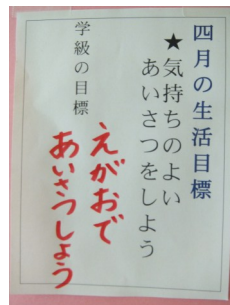 四月の生活目標
★気持ちのよい
あいさつをしよう
学級の目標
えがおで
あいさつしょう